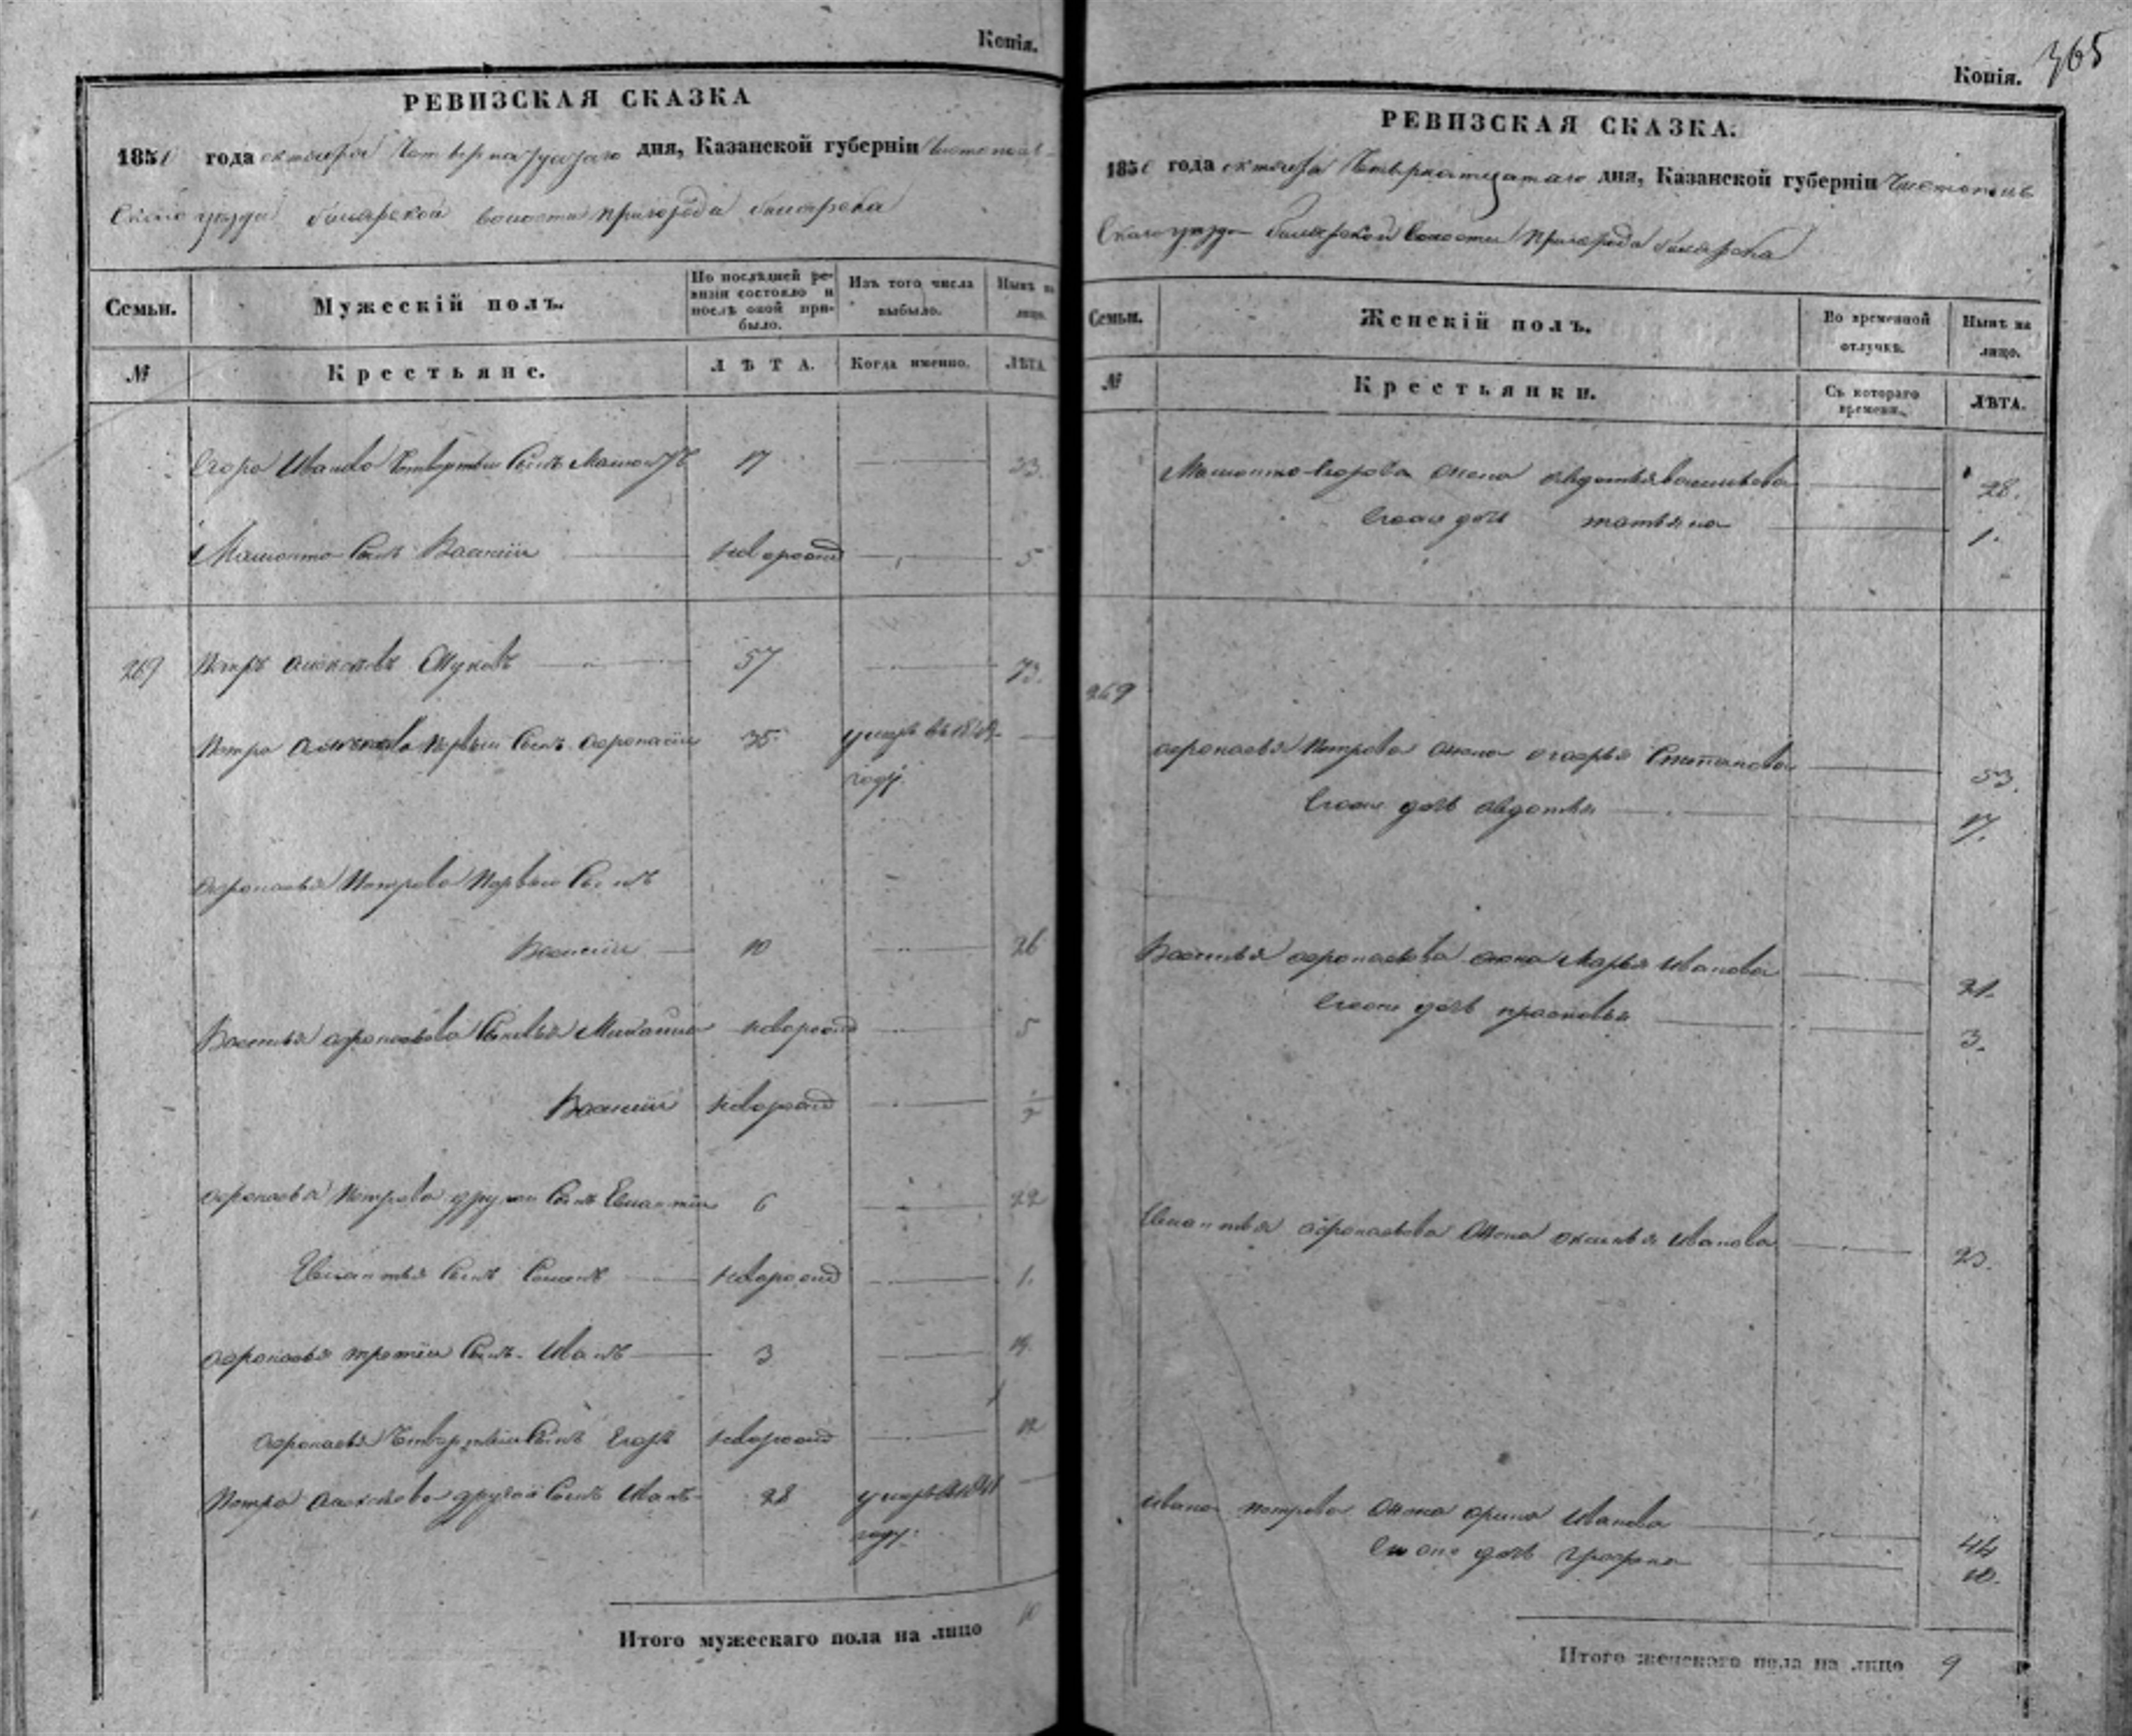 Копія.
РЕВИЗСКАЯ СКАЗКА
1850 года октября Четвернатцатаго дня, Казанской губерніи Чистополь-
Скаго уезда билярской волости пригорода билярска
Семьи.
Мужескій полъ.
По послѣдней ре-
визіи состояло и
послѣ оной при-
было.
Изъ того числа
выбыло.
Нынѣ на
лицо.
№
Крестьяне.
ЛѢТА.
Когда именно.
ЛѢТА.
Егора Иванова Четвертый Сынъ 17 33.
Сынъ Василій новорожд 5
269 Петръ Алексѣевъ Жуковъ 57 73.
Петра Алексѣева Первый Сынъ Афронасій 35 умеръ въ
году.
Афронасья Петрова Первый Сынъ
Василій 10 26
Василья Афронасьева Сыновья Михаила новорожд 5
Василій новорожд
Афронасья Петрова другой Сынъ 6 22
Сынъ Семенъ новорожд 1.
Афронасья третій Сынъ Иванъ 3 19.
Афронасья Четвертый Сынъ Егоръ новорожд 12
Петра Алексѣева другой Сынъ Иванъ 28 умеръ
году.
Итого мужескаго пола на лицо 10
365
Копія.
РЕВИЗСКАЯ СКАЗКА.
1850 года октября Четвернатцатаго дня, Казанской губерніи Чистополь
Скаго уезда билярской волости пригорода билярска
Семьи.
Женскій полъ.
Во временной
отлучкѣ.
Нынѣ на
лицо.
№
Крестьянки.
Съ котораго
времени.
ЛѢТА.
Егорова жена авдотья васильева 28.
Его дочь татьяна 1.
269
афронасья Петрова жена Степанова 53.
Его дочь авдотья 17.
Василья афронасьева жена Марья Иванова 21.
Его дочь прасковья 3.
афронасьева жена Иванова 23.
Ивана петрова жена арина Иванова 44
дочь 10.
Итого женскаго пола на лицо 9